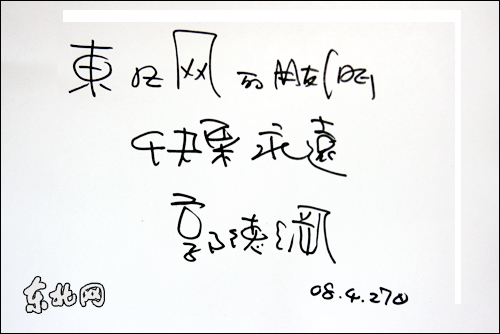 東北网的朋友们
快樂永遠
郭德綱
08.4.27日
东北网